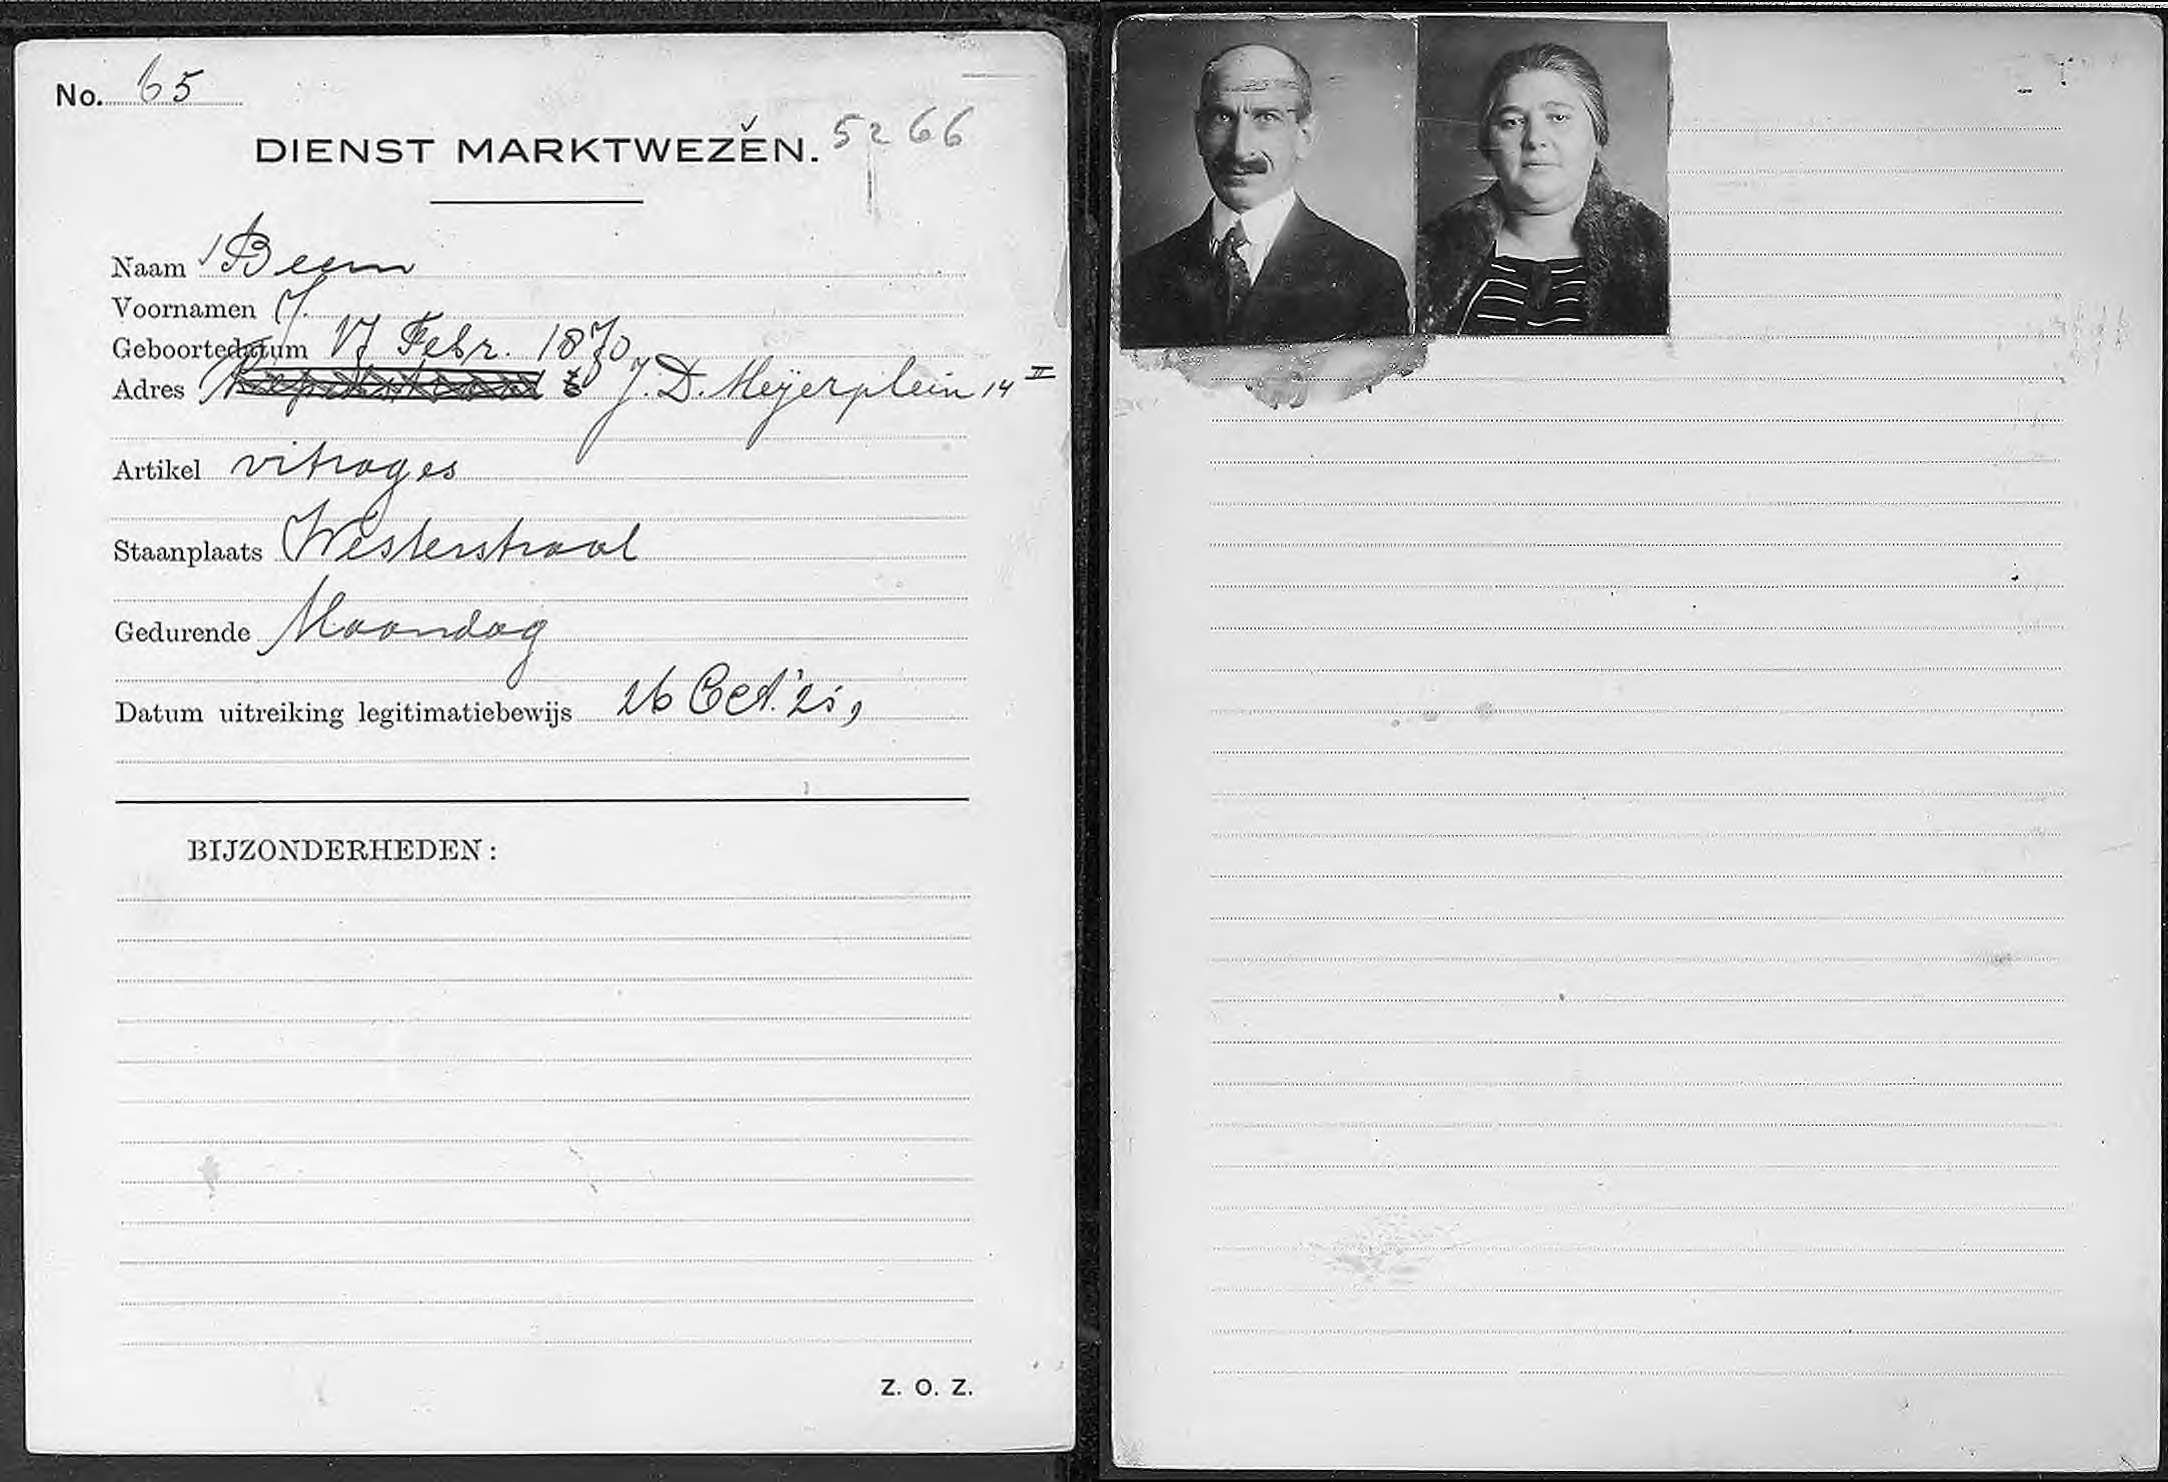 No. 65
DIENST MARKTWEZEN. 5266
Naam Beem
Voornamen J.
Geboortedatum 17 Febr. 1870
Adres J. D. Meijerplein 14 II
Artikel vitrages
Staanplaats Westerstraat
Gedurende Maandag
Datum uitreiking legitimatiebewijs 26 Oct. '25,
BIJZONDERHEDEN:
Z. O. Z.